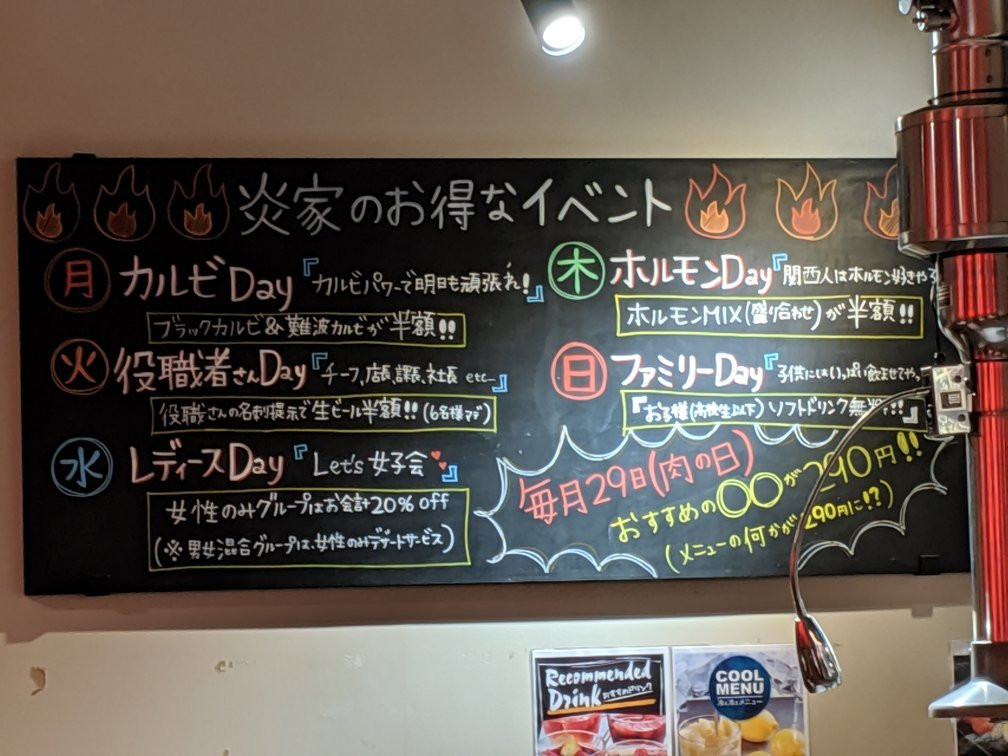 炎家のお得なイベント
月 カルビDay『カルビパワーで明日も頑張れ!』
ブラックカルビ&難波カルビが半額!!
火 役職者さんDay『チーフ,店長,課長,社長 etc…』
役職さんの名刺提示で生ビール半額!!(6名様マデ)
水 レディースDay『Let's 女子会』
女性のみグループはお会計20%off
(※男女混合グループは、女性のみデザートサービス)
木 ホルモンDay『関西人はホルモン好きやろ
ホルモンMIX(盛り合わせ)が半額!!
日 ファミリーDay『子供にはいっぱい飲ませてや、
『お子様(高校生以下)ソフトドリンク無料!!』
毎月29日(肉の日)
おすすめの○○が290円!!
(メニューの何かが290円に!?)
Recommended
Drink おすすめドリンク
COOL
MENU
冷え冷えメニュー